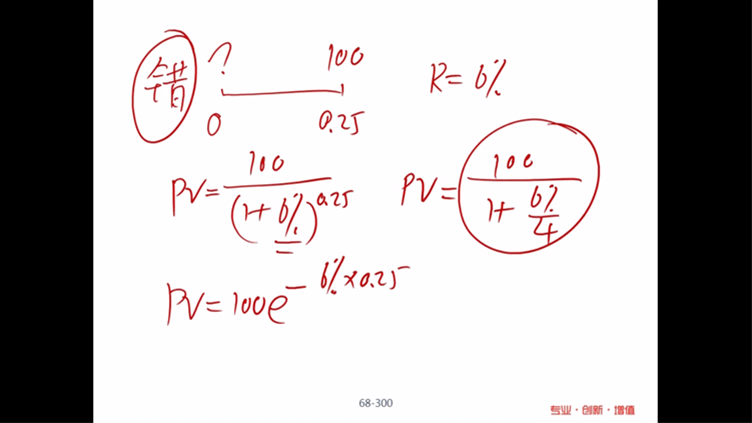 错 ? 100
0 0.25 R = 6%
PV = 100 / (1+6%)^0.25 PV = 100 / (1 + 6%/4)
PV = 100e^(-6%×0.25)
68-300
专业·创新·增值